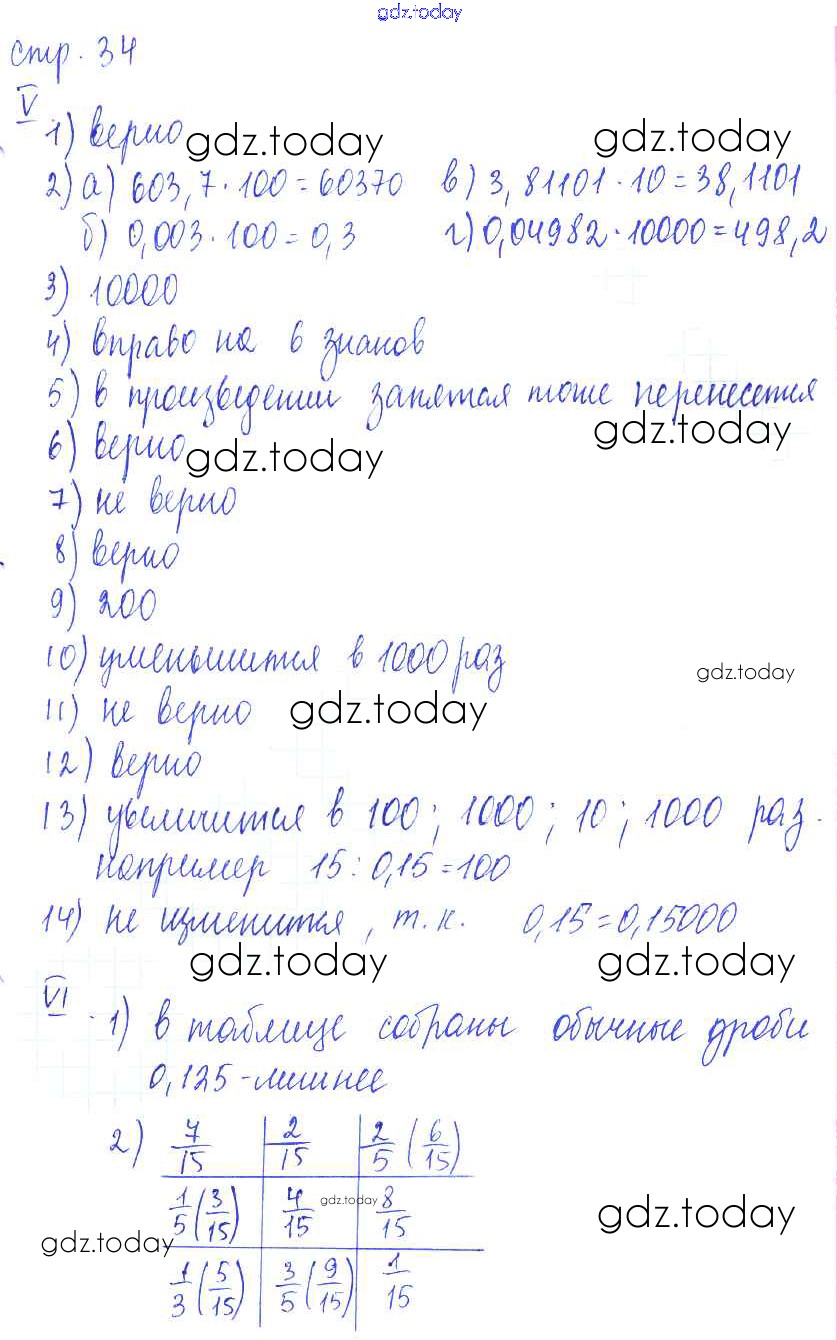 gdz.today
стр. 34
V
1) верно gdz.today gdz.today
2) а) 603,7 · 100 = 60370 в) 3,81101 · 10 = 38,1101
б) 0,003 · 100 = 0,3 г) 0,04982 · 10000 = 498,2
3) 10000
4) вправо на 6 знаков
5) в произведении запятая тоже перенесется
6) верно gdz.today gdz.today
7) не верно
8) верно
9) 200
10) уменьшится в 1000 раз gdz.today
11) не верно gdz.today
12) верно
13) увеличится в 100; 1000; 10; 1000 раз.
например 15 : 0,15 = 100
14) не изменится, т.к. 0,15 = 0,15000
gdz.today gdz.today
VI 1) в таблице собраны обычные дроби
0,125 - лишнее
2) 7/15 2/15 2/5 (6/15)
1/5 (3/15) 4/15 gdz.today 8/15 gdz.today
gdz.today
1/3 (5/15) 3/5 (9/15) 1/15